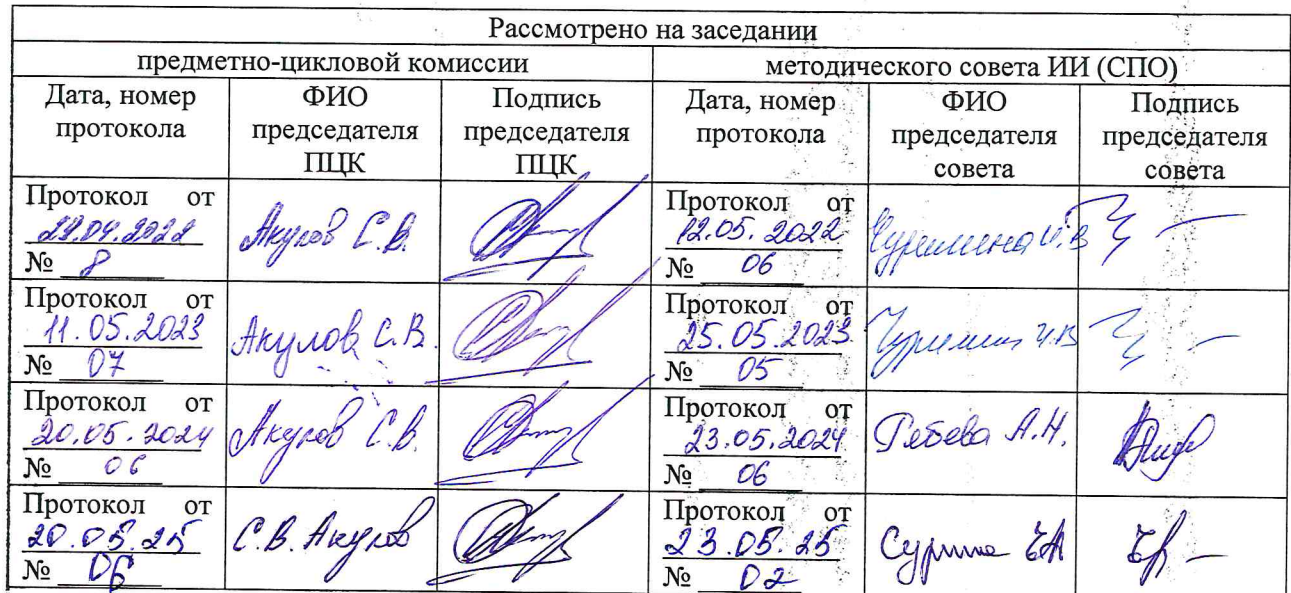 Рассмотрено на заседании
предметно-цикловой комиссии
методического совета ИИ (СПО)
Дата, номер
протокола
ФИО
председателя
ПЦК
Подпись
председателя
ПЦК
Дата, номер
протокола
ФИО
председателя
совета
Подпись
председателя
совета
Протокол от
2022
№ 8
Акулов С.В.
Протокол от
12.05.2022
№ 06
Протокол от
11.05.2023
№ 07
Акулов С.В.
Протокол от
25.05.2023
№ 05
Протокол от
20.05.2024
№ 06
Акулов С.В.
Протокол от
23.05.2024
№ 06
А.Н.
Протокол от
20.05.25
№ 06
С.В. Акулов
Протокол от
23.05.25
№ 02